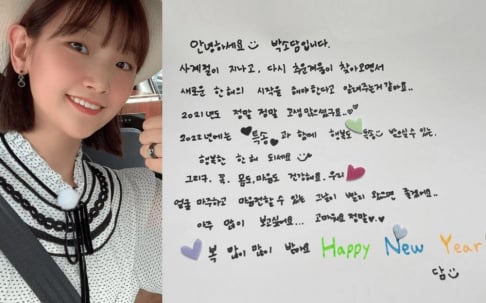 안녕하세요 박소담입니다.
사계절이 지나고, 다시 추운계절이 찾아오면서
새로운 한해의 시작을 해야한다고 알려주는거같아요..
2021년도 정말 정말 고생많으셨구요..♡♡
2022년에는 ♥특송♥과 함께 행복도 쏙쏙 받으실 수 있는
행복한 한 해 되세요
그리구, 꼭, 몸도,마음도 건강해요. 우리
얼굴 마주하고 마음전할수 있는 그날이 빨리 오면 좋겠어요..
아주 많이 보고싶어요... 고마워요 정말♥.♥
복 많이 많이 받아요 Happy New Year
담